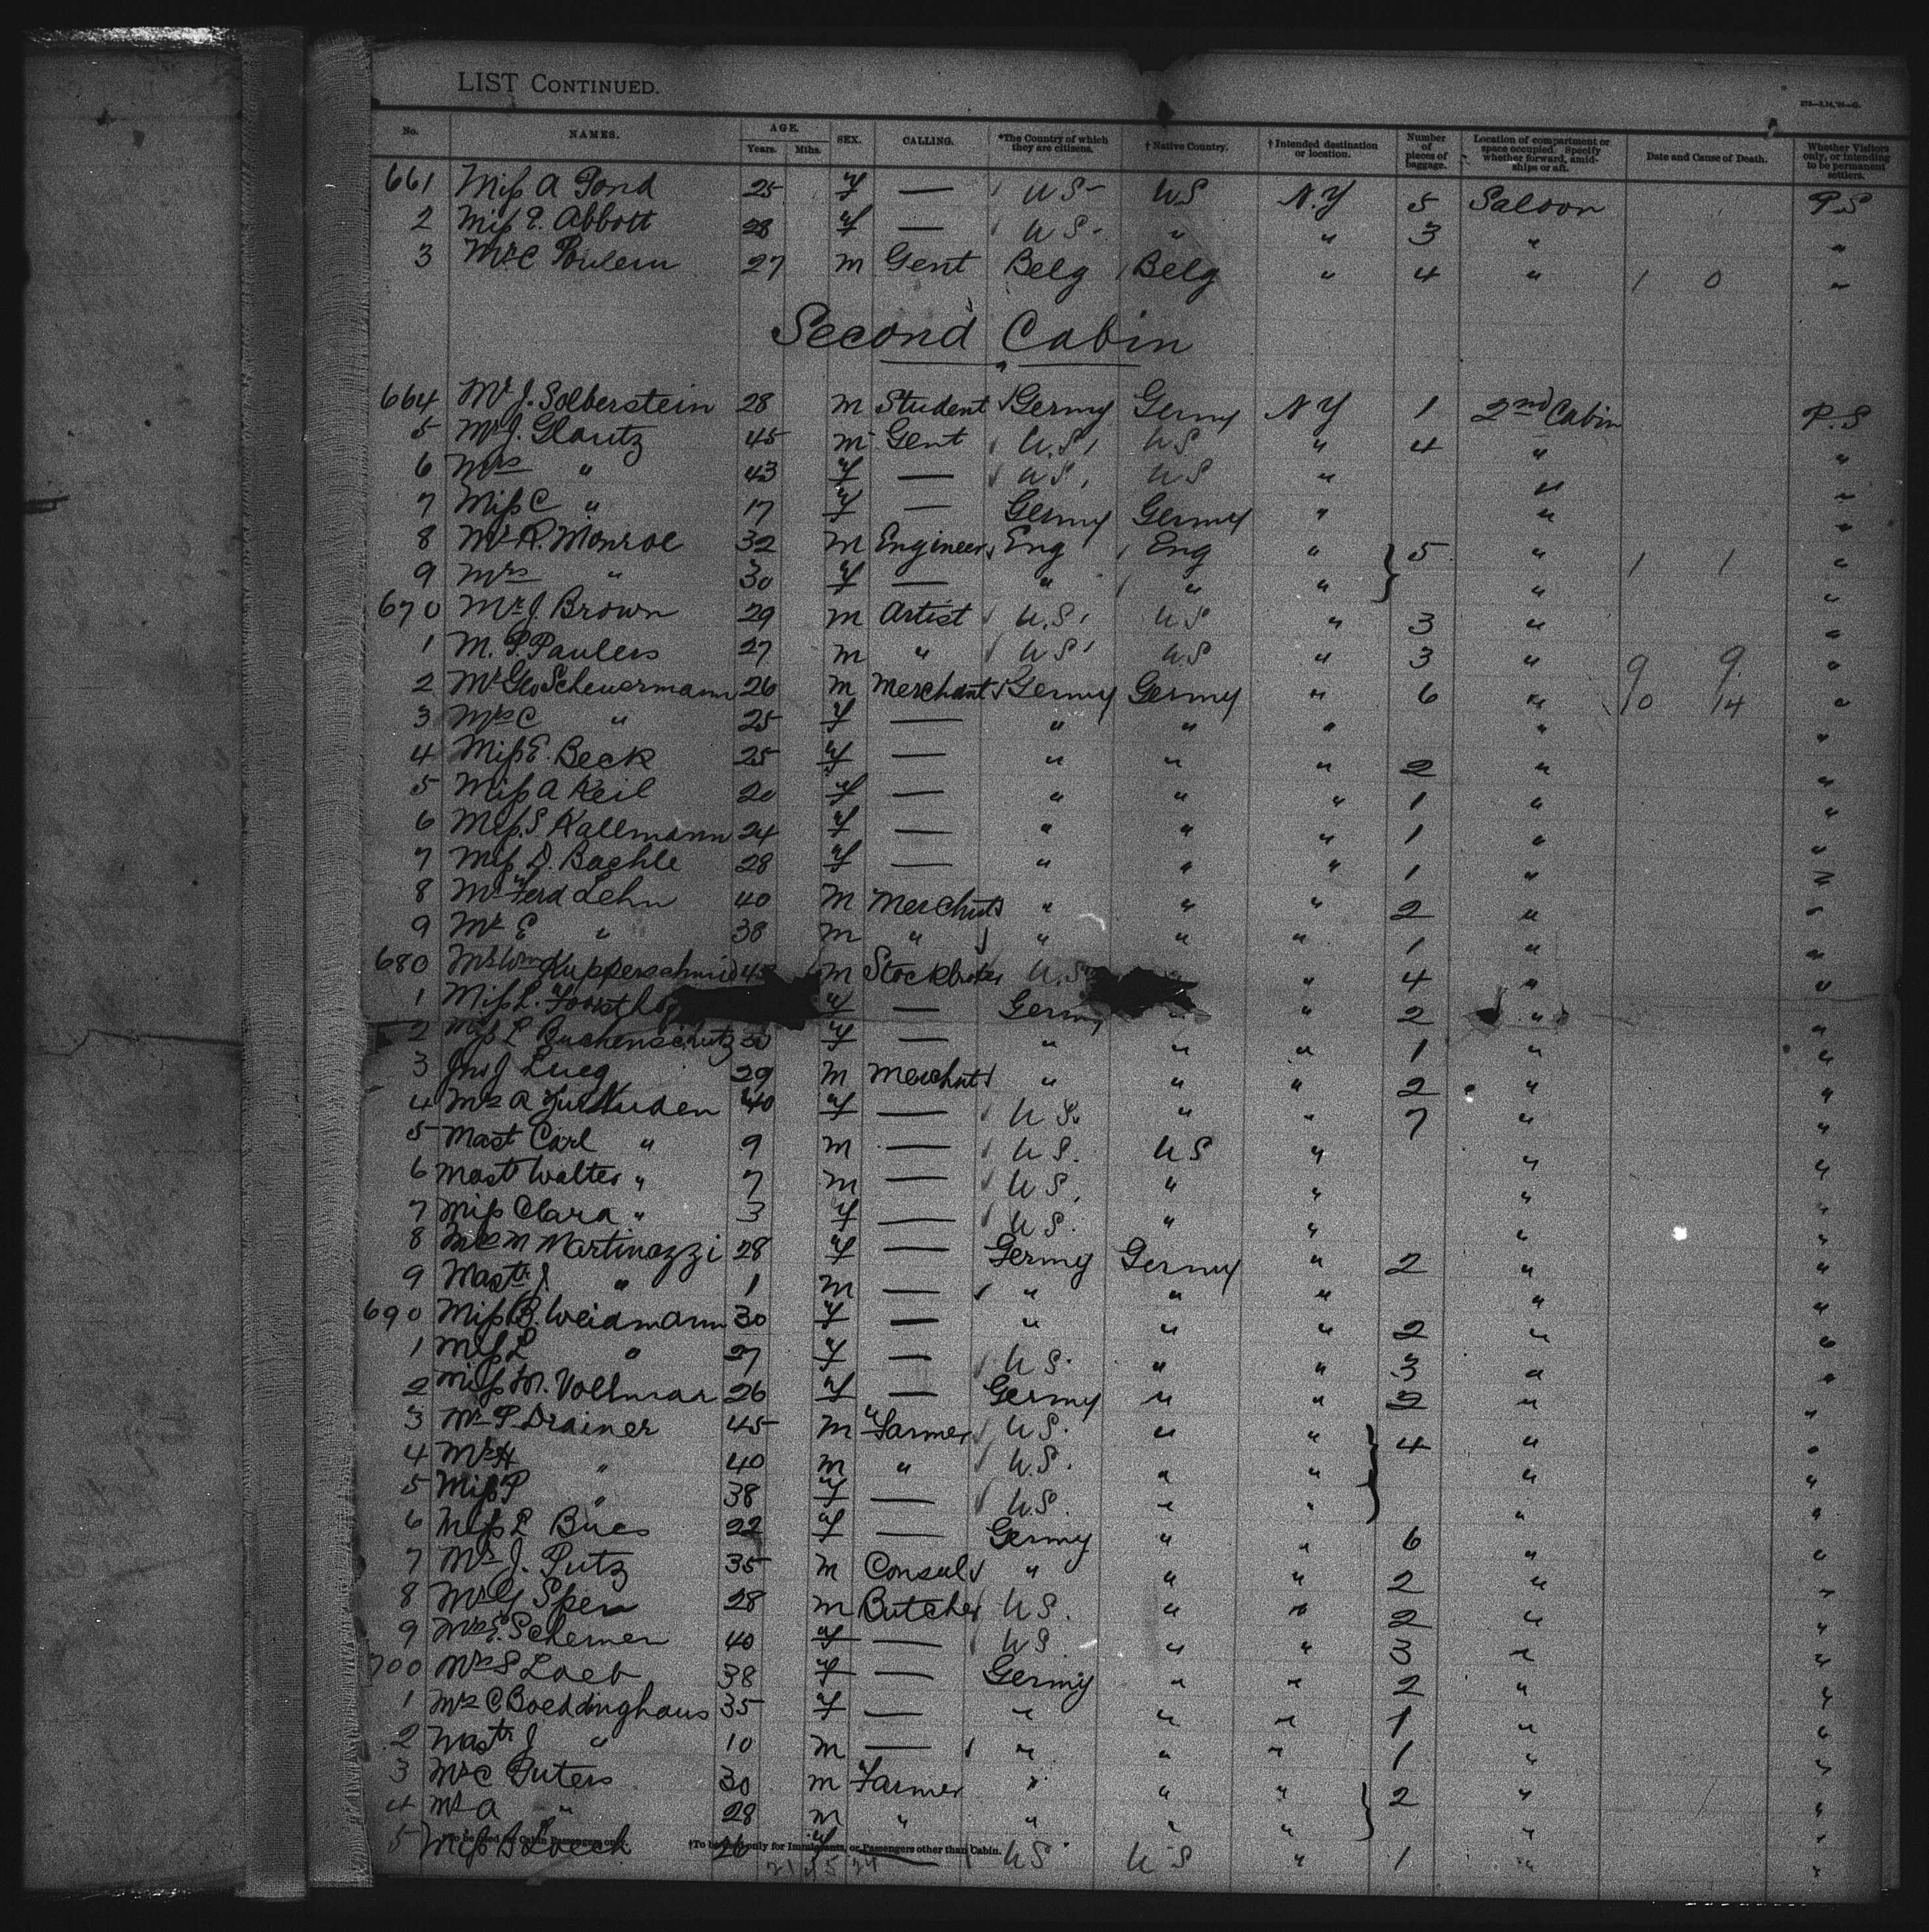 LIST CONTINUED.
No. NAMES. AGE. Years. Mths. SEX. CALLING. *The Country of which they are citizens. † Native Country. † Intended destination or location. Number of pieces of baggage. Location of compartment or space occupied. Specify whether forward, amidships or aft. Date and Cause of Death. Whether Visitors only, or intending to be permanent settlers.
661 Miss A Pond 25 f — U S U S N.Y 5 Saloon P.S
2 Miss E. Abbott 28 f — U S " " 3 " "
3 Mr C 27 m Gent Belg Belg " 4 " 1 0 "
Second Cabin
664 Mr J. Solberstein 28 m Student Germy Germy N Y 1 2nd Cabin P.S
5 Mr J. Glantz 45 m Gent U.S. U S " 4 " "
6 Mrs " 43 f — U S. U S " " "
7 Miss C " 17 f — Germy Germy " " "
8 Mr R. Monroe 32 m Engineer Eng Eng " } 5 " 1 1 "
9 Mrs " 30 f — " " " " "
670 Mr J Brown 29 m Artist U.S. U S " 3 " "
1 M. P. Paulers 27 m " U S U.S " 3 " 9 9 "
2 Mr Geo Scheuermann 26 m Merchant Germy Germy " 6 " 10 14 "
3 Mrs C " 25 f — " " " " "
4 Miss E. Beck 25 f — " " " 2 " "
5 Miss A Keil 20 f — " " " 1 " "
6 Miss S Kallmann 24 f — " " " 1 " "
7 Miss D. Baehle 28 f — " " " 1 " "
8 Mr Ferd Lehn 40 m Merchnt " " " 2 " "
9 Mr E " 38 m " " " " 1 " "
680 Mr Wm Kupperschmid 4 m Stockbroker U.S " 4 " "
1 Miss L. f — Germy " 2 " "
2 Miss L Buchenschutz 30 f — " " " 1 " "
3 J Lueg 29 m Merchnt " " " 2 " "
4 Mrs A 40 f — U S. " " 7 " "
5 Mast Carl " 9 m — U S. U S " " "
6 Mast Walter " 7 m — U S. " " " "
7 Miss Clara " 3 f — U S. " " " "
8 Mrs M Martinazzi 28 f — Germy Germy " 2 " "
9 Mastr J. " 1 m — " " " " "
690 Miss B. Weidmann 30 f — " " " 2 " "
1 Miss L " 27 f — U S. " " 3 " "
2 Miss M. Vollmar 26 f — Germy " " 2 " "
3 Mr P Drainer 45 m Farmer U S. " " } 4 " "
4 Mr H " 40 m " U.S. " " " "
5 Miss P " 38 f — U.S. " " " "
6 Miss L Bues 22 f — Germy " " 6 " "
7 Mr J. Putz 35 m Consul " " " 2 " "
8 Mr G Speer 28 m Butcher U S. " " 2 " "
9 Mrs E. Schemer 40 f — U S " " 3 " "
700 Mrs S Loeb 38 f — Germy " " 2 " "
1 Mrs C Boeddinghaus 35 f — " " " 1 " "
2 Mastr J " 10 m — " " " 1 " "
3 Mr C Puters 30 m Farmer " " " } 2 " "
4 Mr A " 28 m " " " " " "
5 Miss B 26 f — U S U S " 1 " "
†To be used only for Immigrants, or Passengers other than Cabin.